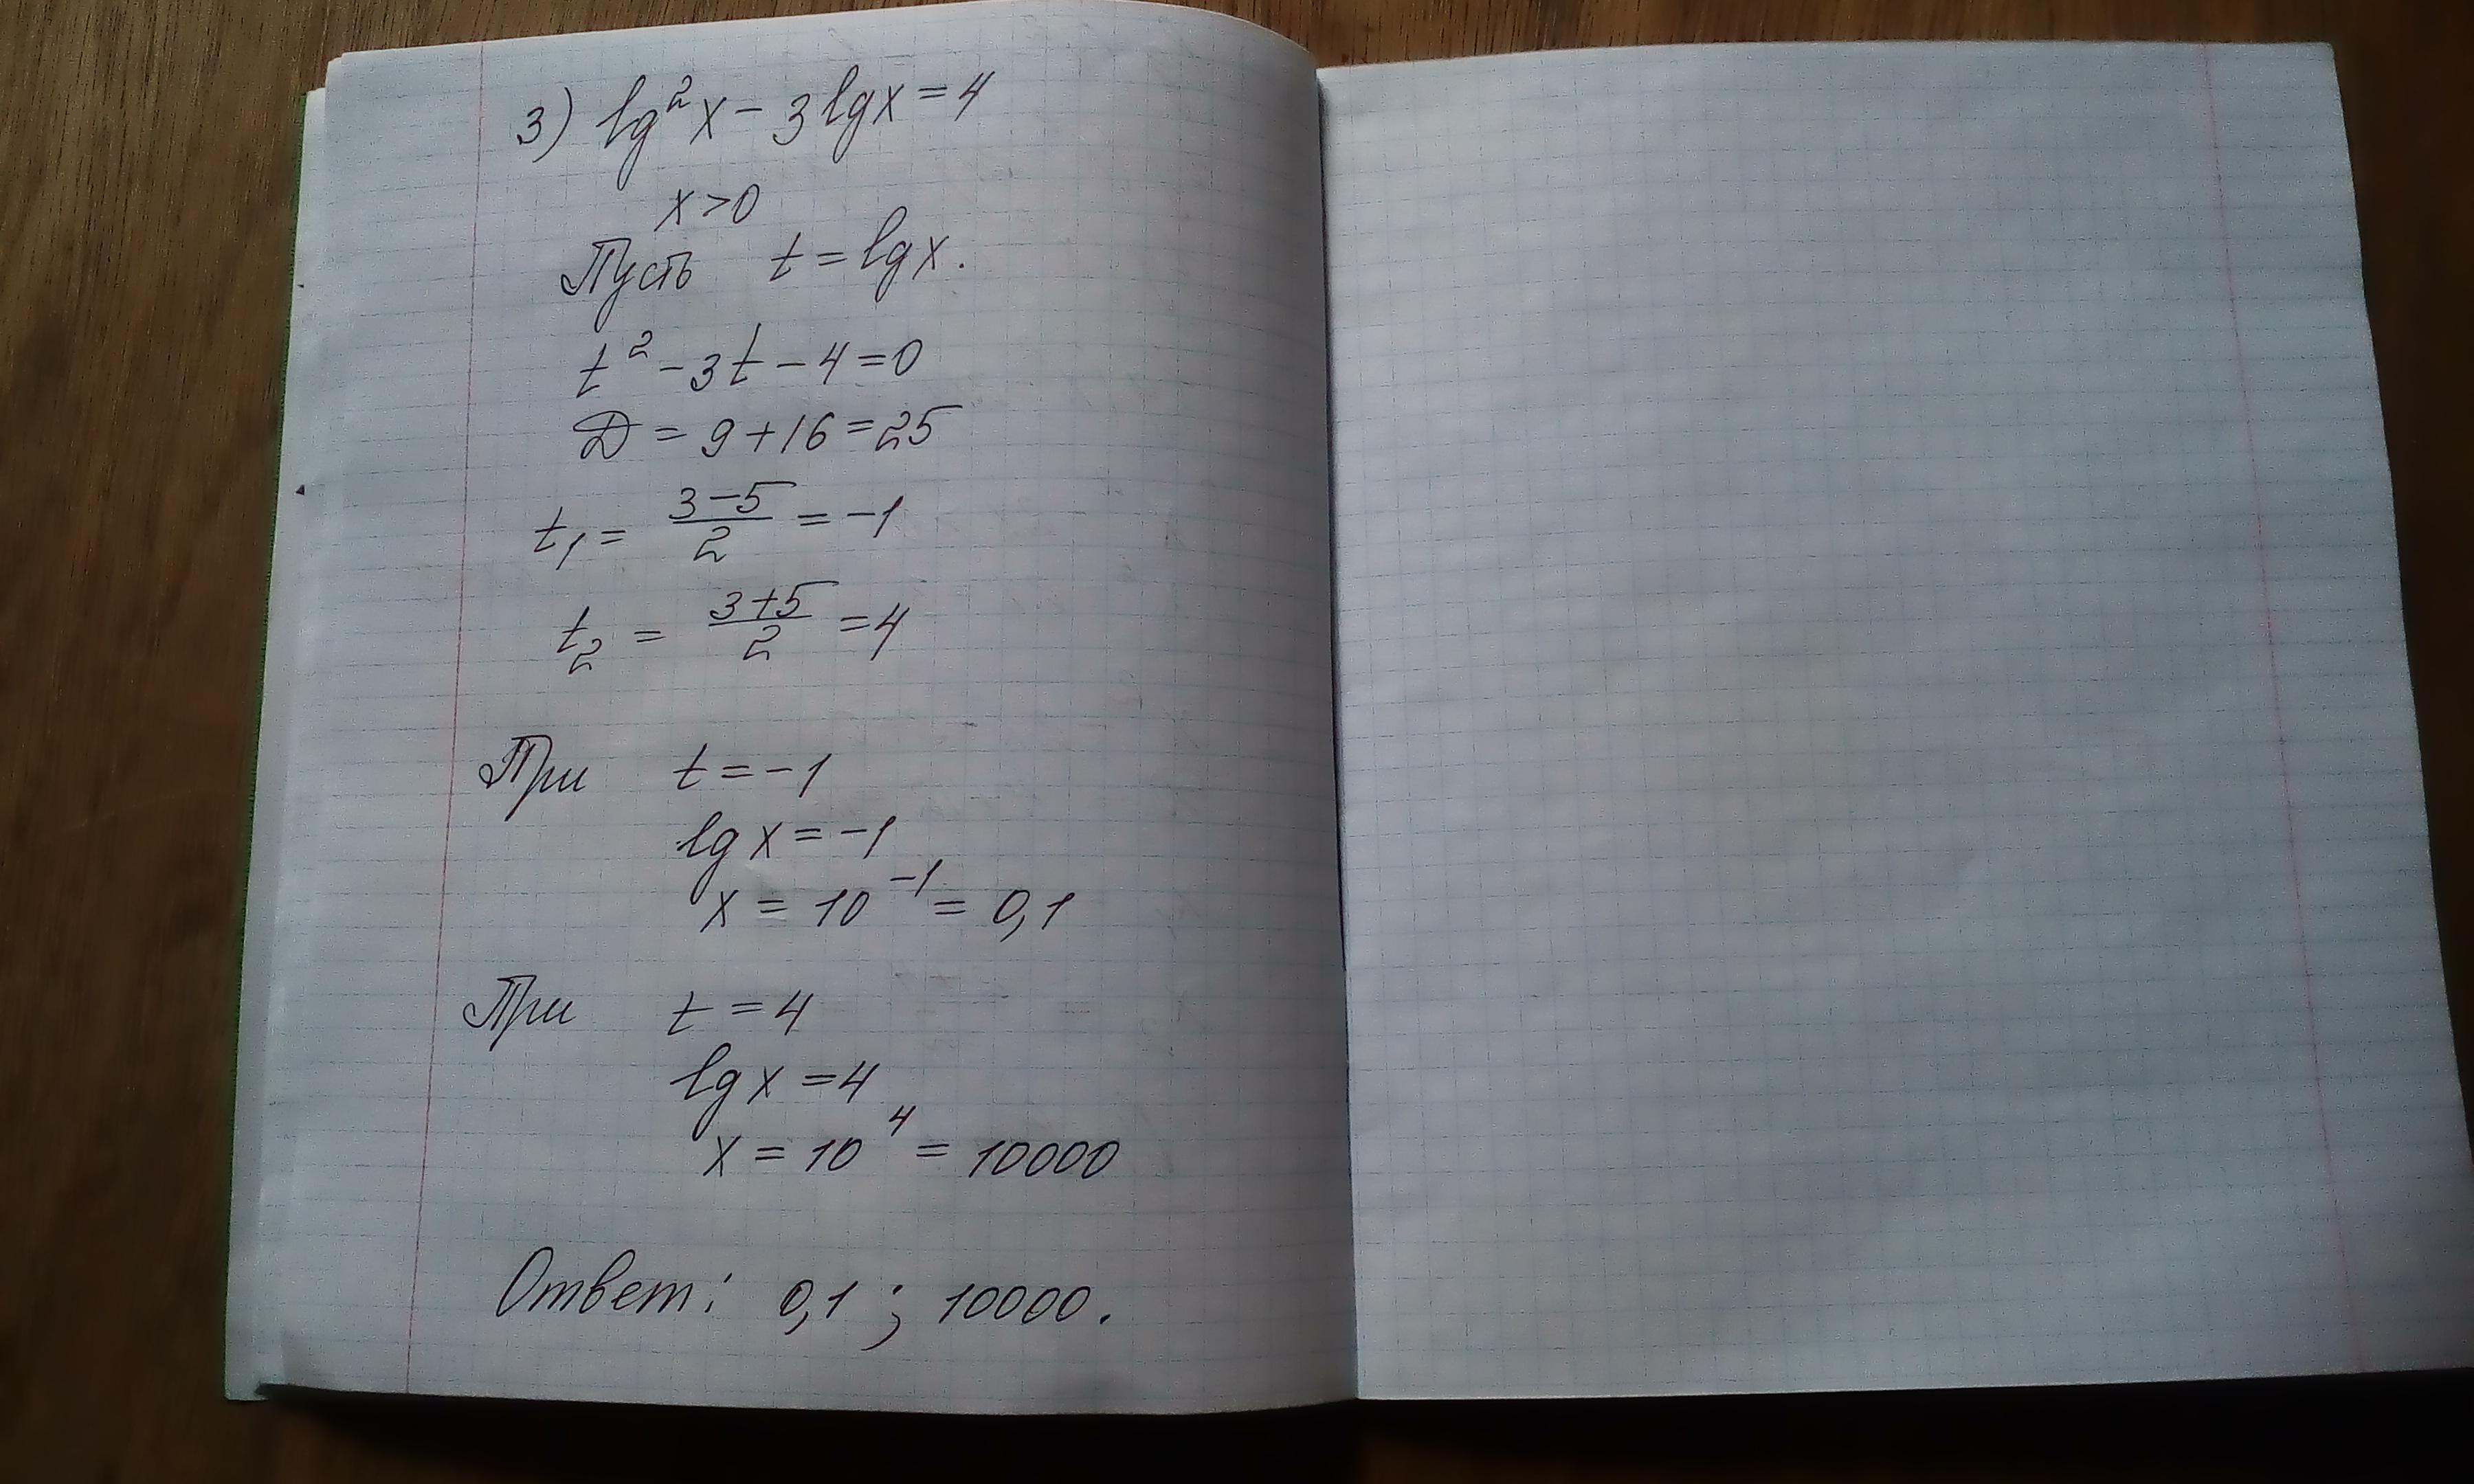 3) lg²x - 3lgx = 4
x > 0
Пусть t = lgx.
t² - 3t - 4 = 0
Д = 9 + 16 = 25
t₁ = (3-5)/2 = -1
t₂ = (3+5)/2 = 4
При t = -1
lgx = -1
x = 10⁻¹ = 0,1
При t = 4
lgx = 4
x = 10⁴ = 10000
Ответ: 0,1 ; 10000.